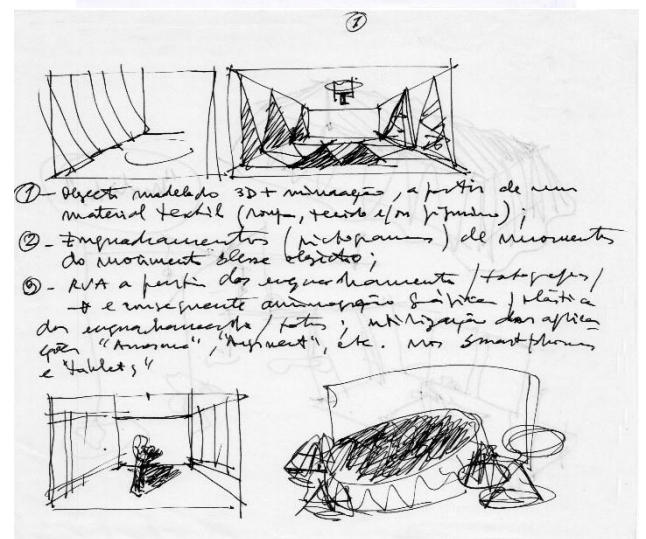 ①
① - Objecto modelado 3D + minuação, a partir de um
material textil (roupa, tecido e/ou figurino);
② - Enquadramentos (pictogramas) de momentos
do movimento desse objecto;
③ - RVA a partir dos enquadramentos / fotografias /
e consequente animação gráfica / plástica
dos enquadramentos / fotos; utilização das aplica
ções "Aurasma", "Augment", etc. nos smartphones
e "tablets"